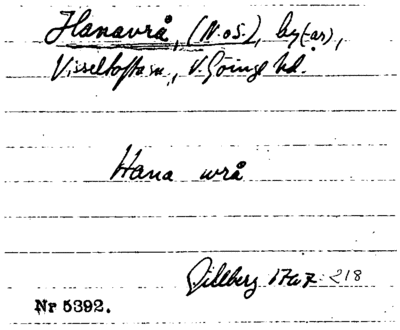 Hanavrå, (N. o S.), by(-ar),
Visseltofta sn, V. Göinge hd.
Hana wrå
Gillberg 1767: 218
Nr 5392.